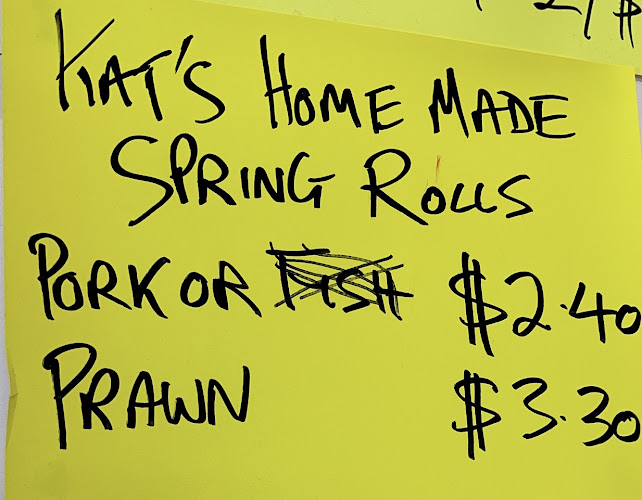 2/$
KIAT'S HOME MADE
SPRING ROLLS
PORK OR FISH $2.40
PRAWN $3.30